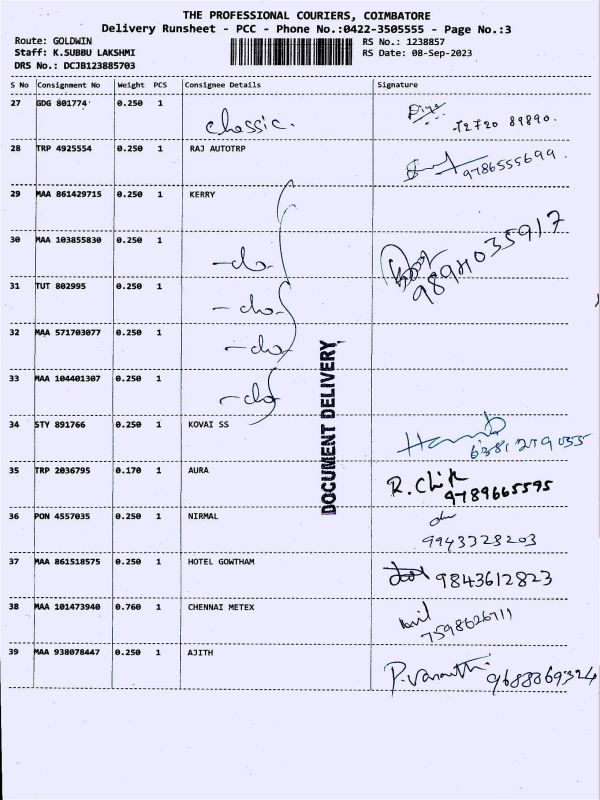 THE PROFESSIONAL COURIERS, COIMBATORE
Delivery Runsheet - PCC - Phone No.:0422-3505555 - Page No.:3
Route: GOLDWIN
Staff: K.SUBBU LAKSHMI
DRS No.: DCJB123885703
RS No.: 1238857
RS Date: 08-Sep-2023
S No Consignment No Weight PCS Consignee Details Signature
27 GDG 801774 0.250 1 classic. 72720 89890.
28 TRP 4925554 0.250 1 RAJ AUTOTRP 9786555699.
29 MAA 861429715 0.250 1 KERRY
30 MAA 103855830 0.250 1 -do- 9894035917
31 TUT 802995 0.250 1 -do-
32 MAA 571703077 0.250 1 -do-
33 MAA 104401307 0.250 1 -do-
DOCUMENT DELIVERY
34 STY 891766 0.250 1 KOVAI SS 6381279055
35 TRP 2036795 0.170 1 AURA R. 9789665595
36 PON 4557035 0.250 1 NIRMAL 9943323203
37 MAA 861518575 0.250 1 HOTEL GOWTHAM 9843612823
38 MAA 101473940 0.760 1 CHENNAI METEX 7598626711
39 MAA 938078447 0.250 1 AJITH 9688869324